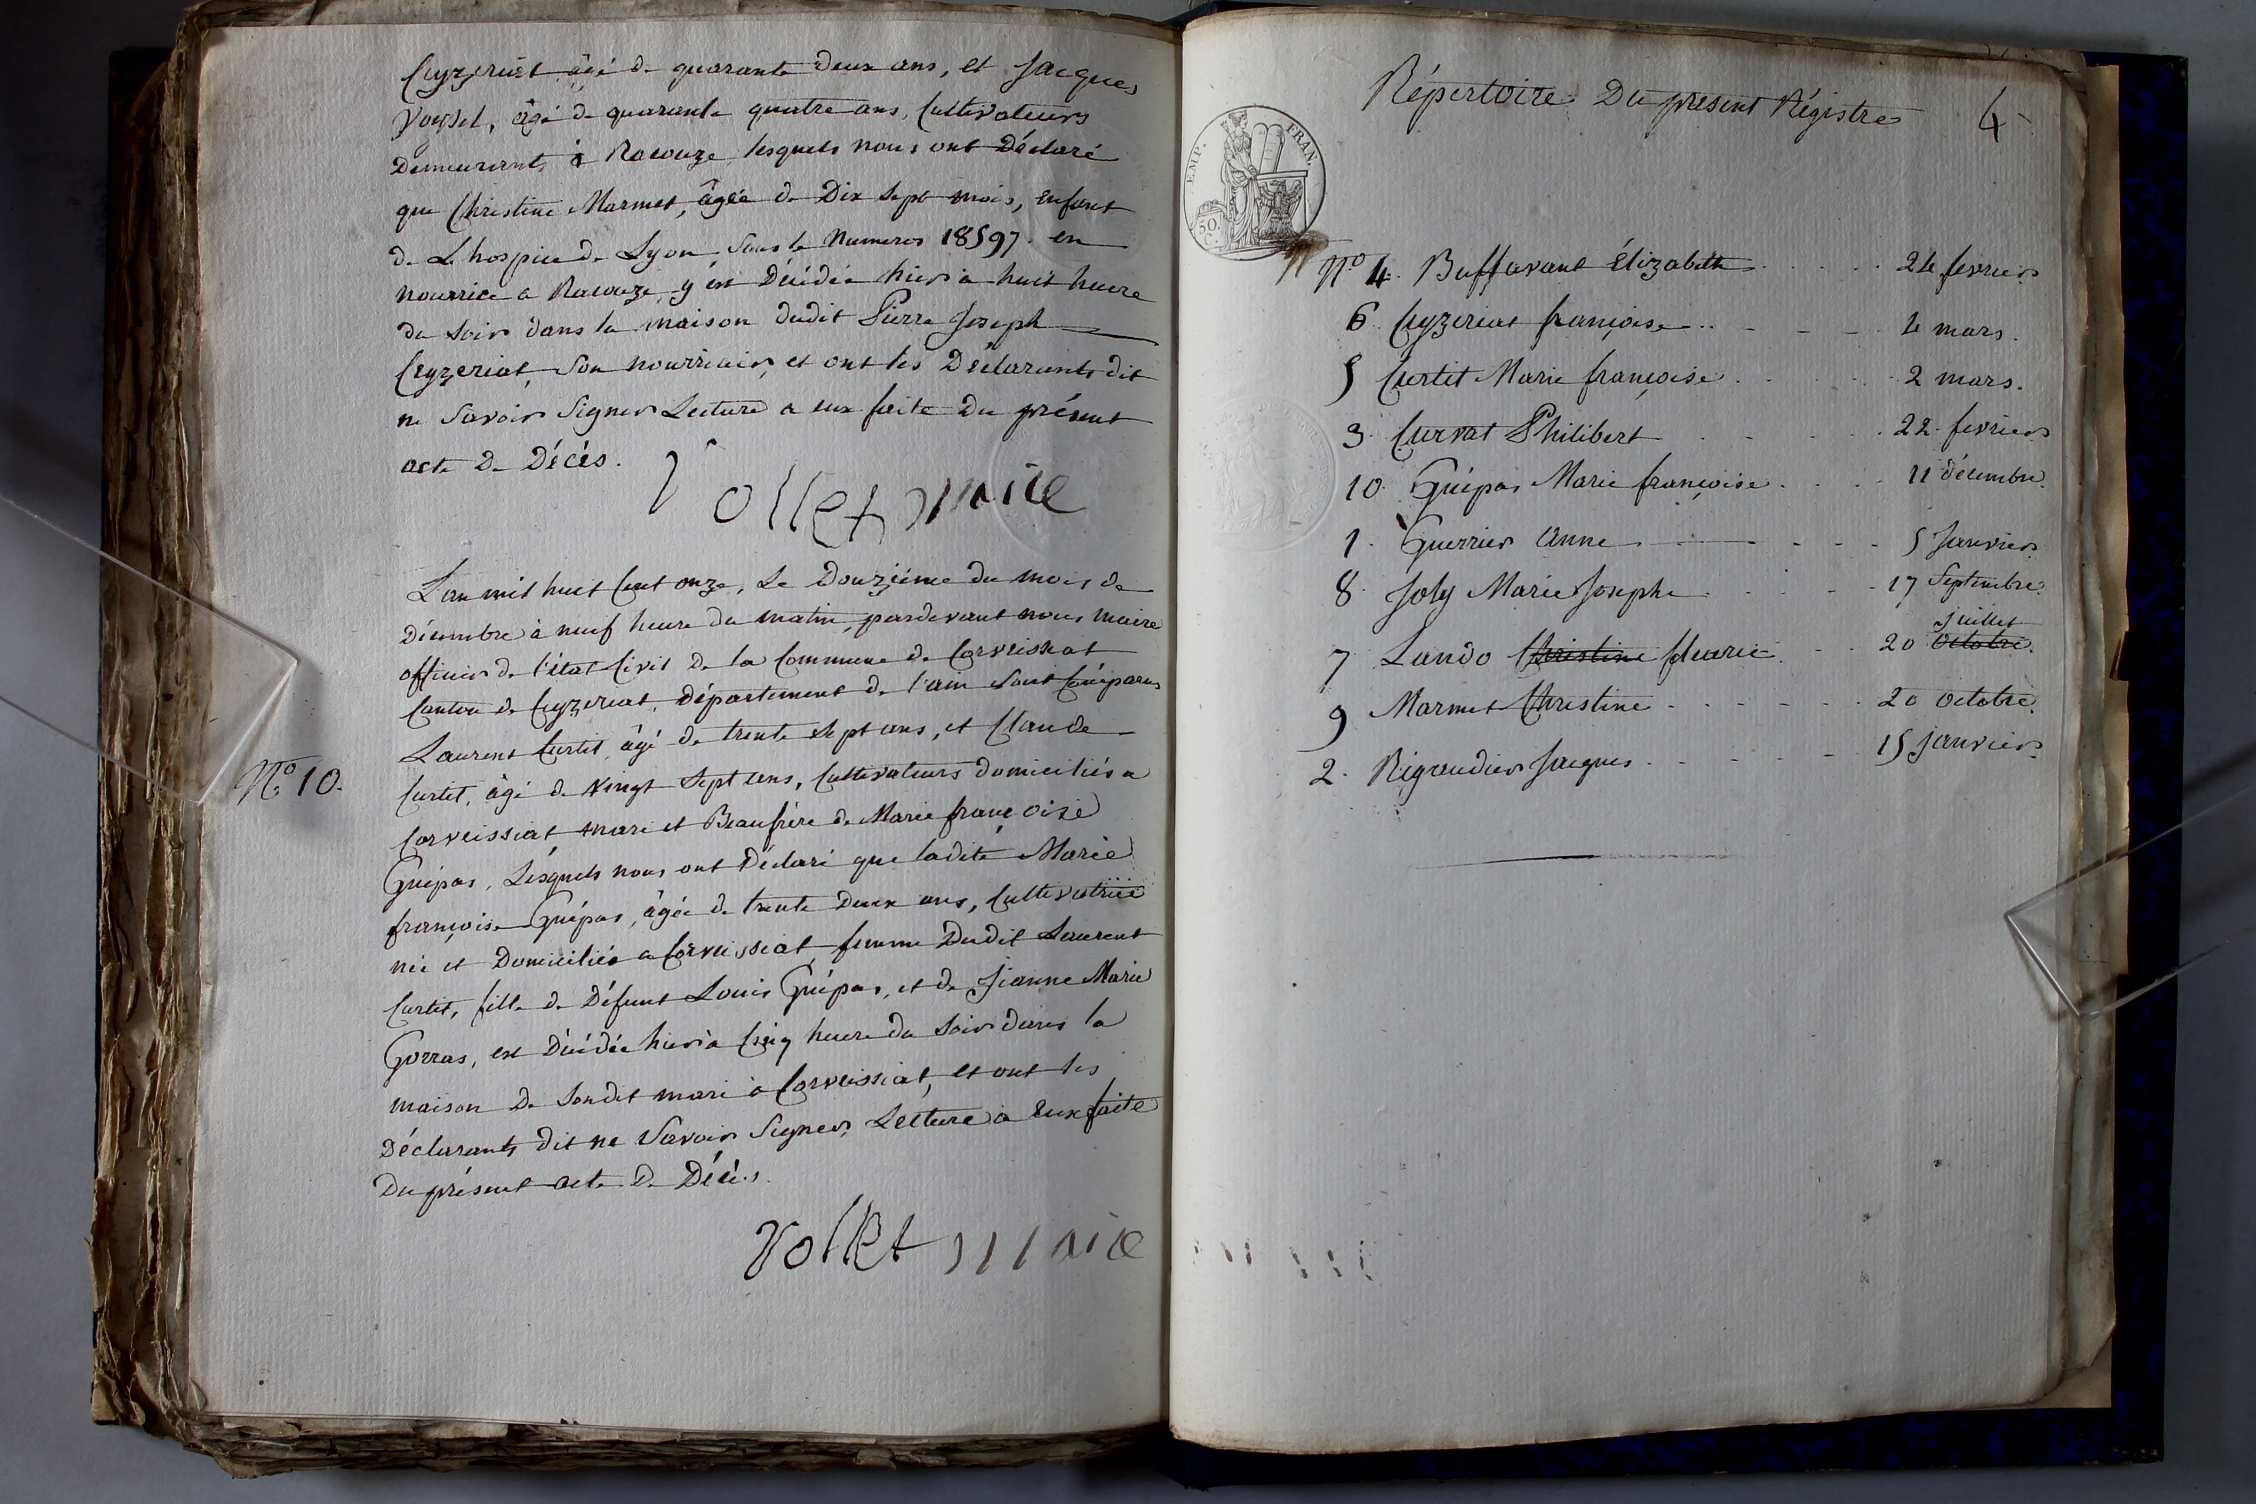 Ceyzeriat âgé de quarante deux ans, et Jacques
Voysel, âgé de quarante quatre ans, Cultivateurs
Demeurant à Racouze lesquels nous ont Déclaré
que Christine Marmet, âgée de Dix sept mois, enfant
de L'hospice de Lyon, sous le Numeros 18597. en
nourrice a Racouze, y est Décédée hier à huit heure
du soir dans la maison dudit Pierre Joseph
Ceyzeriat, son nourricier, et ont les Déclarants dit
ne savoir signer Lecture a eux faite du présent
acte de Décés.
Vollet maire
N.º 10.
L'an mil huit Cent onze, Le Douzième du mois de
Décembre à neuf heure du matin, pardevant nous maire
officier de l'état Civil de la Commune de Corveissiat
Canton de Ceyzeriat, Département de l'ain sont Comparus
Laurent Curtet, âgé de trente sept ans, et Claude
Curtet, âgé de vingt sept ans, Cultivateurs domiciliés a
Corveissiat, mari et Beaufrère de Marie françoise
Guépas, Lesquels nous ont Déclaré que ladite Marie
françoise Guépas, âgée de trente Deux ans, Cultivatrice
née et Domiciliée a Corveissiat, femme Dudit Laurent
Curtet, fille de Défunt Louis Guépas, et de Jeanne Marie
Gorras, est Décédée hier à Cinq heure du soir dans la
maison De sondit mari à Corveissiat, et ont les
Déclarants dit ne Savoir Signer, Lecture a Eux faite
Du présent acte De Décès.
Vollet maire
Répertoire Du présent Régistre
4
EMP. FRAN.
50 C.
N.º 4. Buffavant Élizabeth 24 fevrier
6. Ceyzeriat françoise 4 mars.
5 Curtet Marie françoise 2 mars.
3. Curvat Philibert 22. fevrier
10. Guépas Marie françoise 11 décembre.
1. Guerrier Anne 5 Janvier
8. Joly Marie Josephe 17 Septembre.
juillet
7 Lando Christine fleurie 20 octobre.
9 Marmet Christine 20 octobre.
2. Rigaudier Jacques 15 janvier